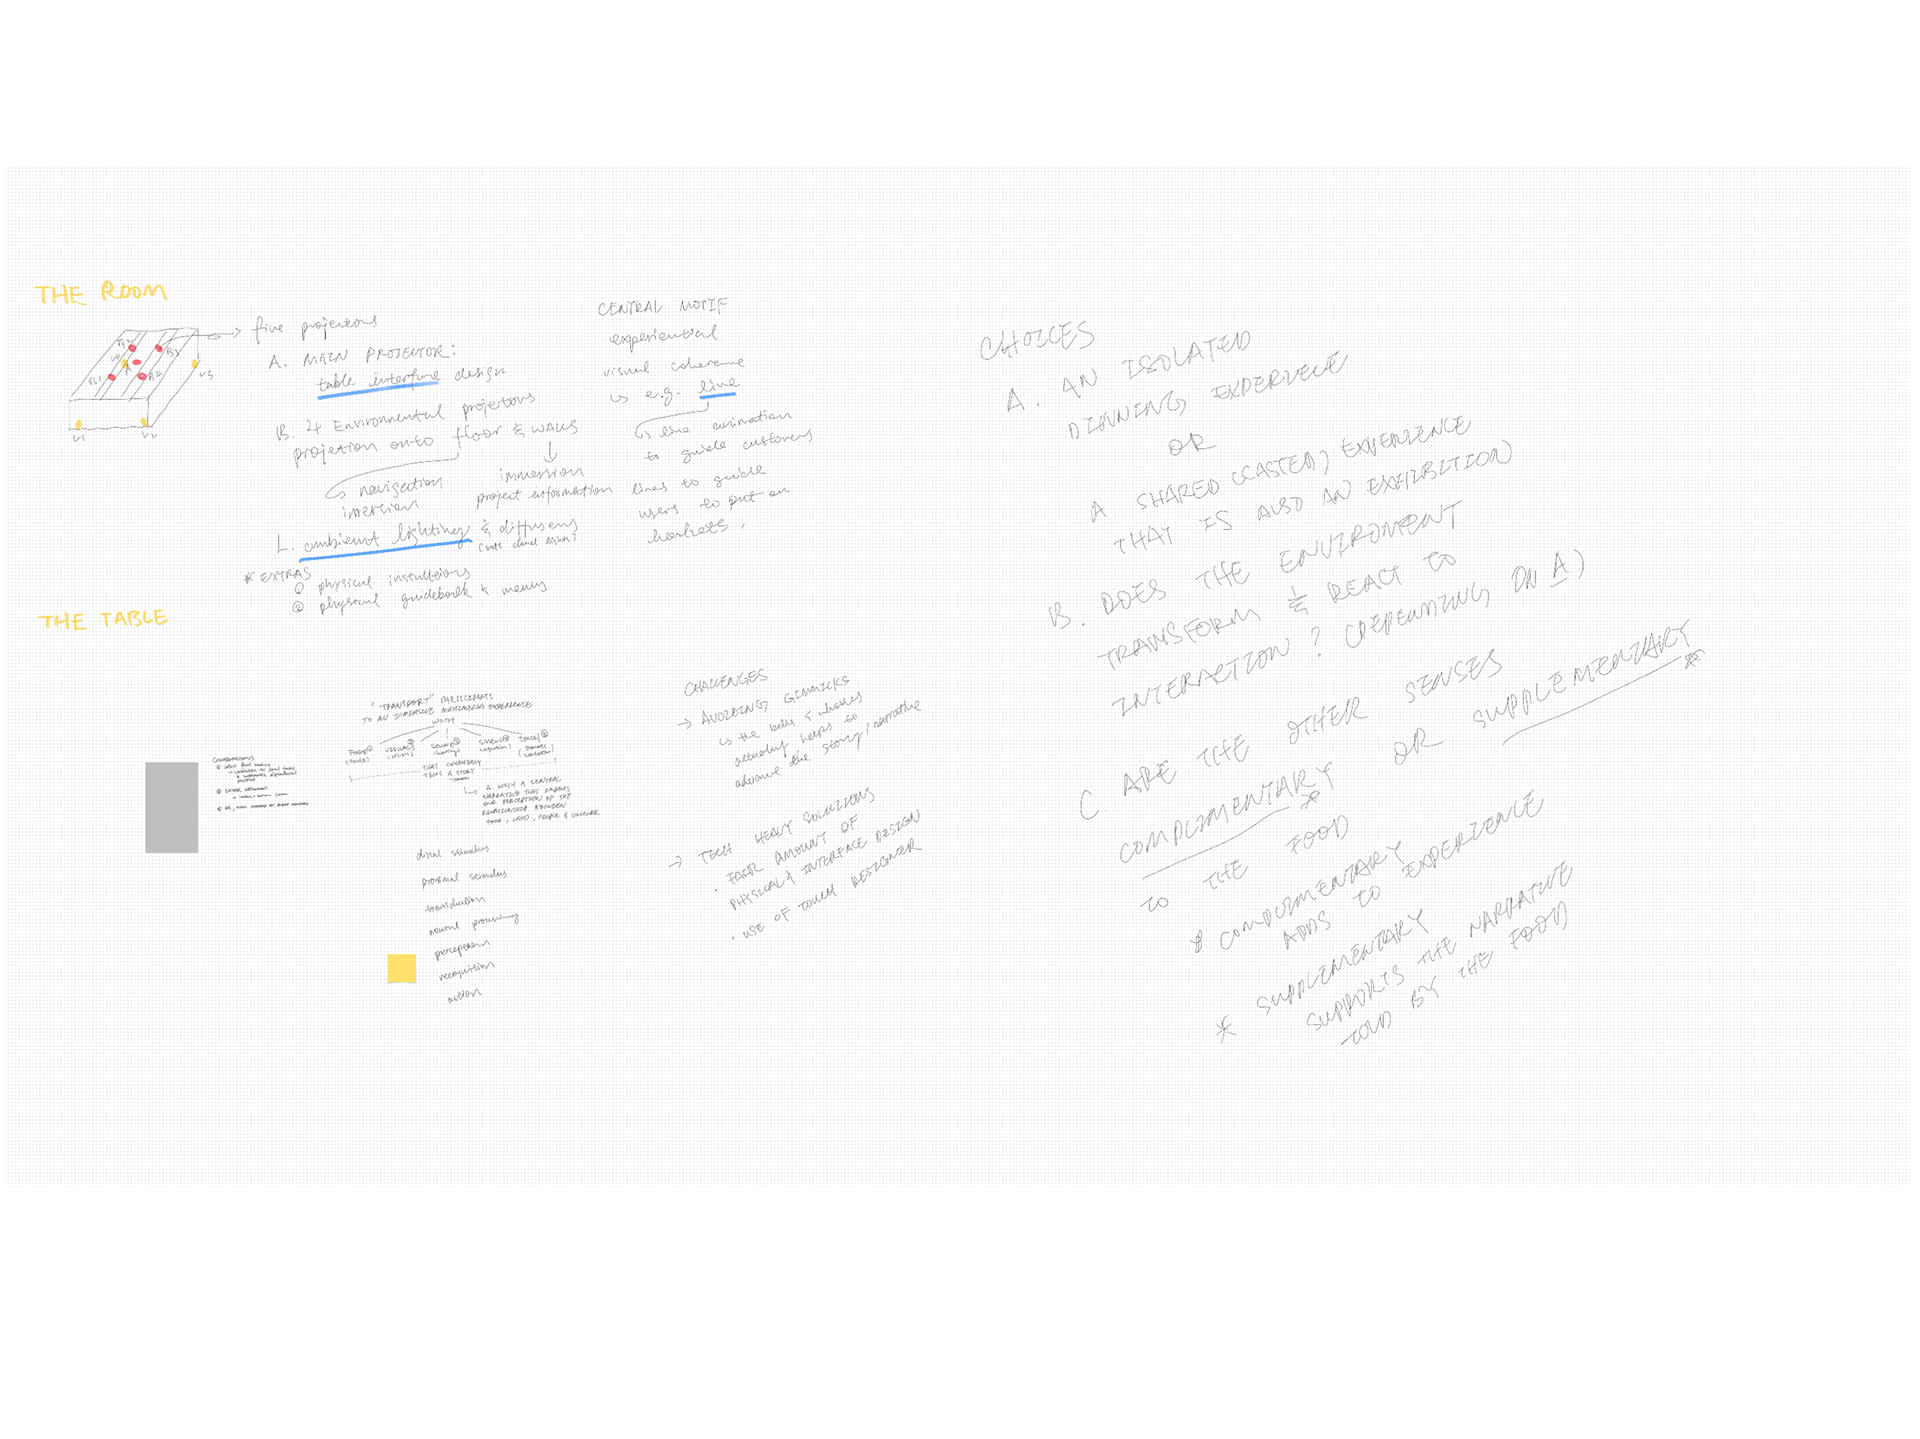 THE ROOM
five projectors
A. MAIN PROJECTOR:
table interface design
B. 2+ Environmental projectors
projection onto floor & WALLS
navigation
imersion
immersion
project information
L. ambient lighting & diffusers
* EXTRAS
① physical
② physical guidebook & menus
B1
B2
B3
A
L1
L3
CENTRAL MOTIF
experiential
visual coherence
↳ e.g. line
↳ line animation
to guide customers
lines to guide
users to put on
headsets,
THE TABLE
"TRANSPORT" PARTICIPANTS
TO AN IMMERSIVE EXPERIENCE
WITH
FOOD
VISUALS
SOUND
SMELL
TOUCH
THAT
TELLS A STORY
↳ A CENTRAL
NARRATIVE THAT
OUR PERCEPTION OF THE
RELATIONSHIP BETWEEN
FOOD, LAND, PEOPLE & CULTURE
distal stimulus
proximal stimulus
transduction
neural processing
perception
recognition
action
CHALLENGES
→ AVOIDING GIMMICKS
is the bells & whistles
actually helps to
advance the story/narrative
→ TECH HEAVY SOLUTIONS
· FAIR AMOUNT OF
PHYSICAL & INTERFACE DESIGN
· USE OF TOUCH DESIGNER
CHOICES
A. AN ISOLATED
DINNING EXPERIECE
OR
A SHARED (CASTED) EXPERIENCE
THAT IS ALSO AN EXHIBITION)
B. DOES THE ENVIROMENT
TRANSFORM & REACT TO
INTERACTION? (DEPENDING ON A)
C. ARE THE OTHER SENSES
COMPLIMENTARY* OR SUPPLEMENTARY*
TO THE FOOD
* COMPLIMENTARY
ADDS TO EXPERIENCE
* SUPPLIMENTARY
SUPPORTS THE NARRATIVE
TOLD BY THE FOOD